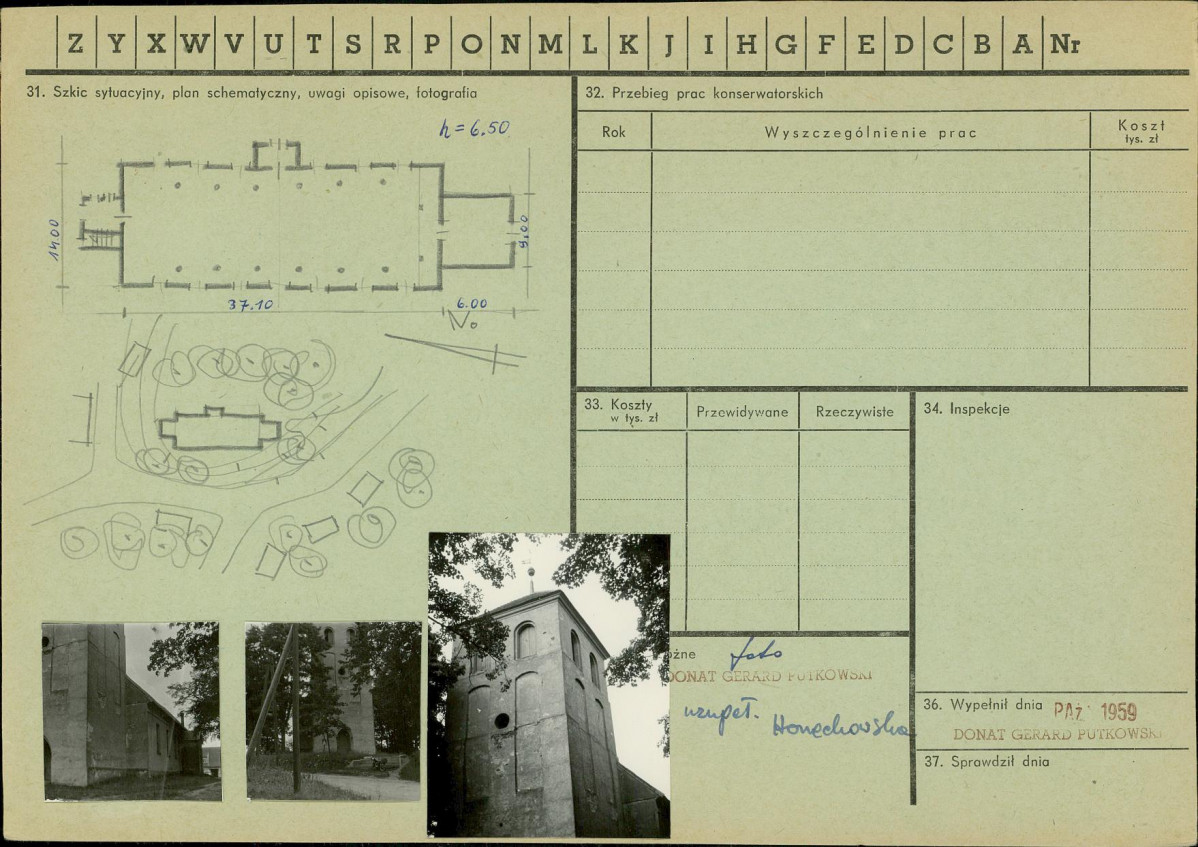 Z Y X W V U T S R P O N M L K J I H G F E D C B A Nr
31. Szkic sytuacyjny, plan schematyczny, uwagi opisowe, fotografia
h = 6.50
14.00
9.00
37.10
6.00
N.
32. Przebieg prac konserwatorskich
Rok
Wyszczególnienie prac
Koszt
tys. zł
33. Koszty
w tys. zł
Przewidywane
Rzeczywiste
34. Inspekcje
foto
DONAT GERARD PUTKOWSKI
uzupeł.
36. Wypełnił dnia PAŹ 1959
DONAT GERARD PUTKOWSKI
37. Sprawdził dnia